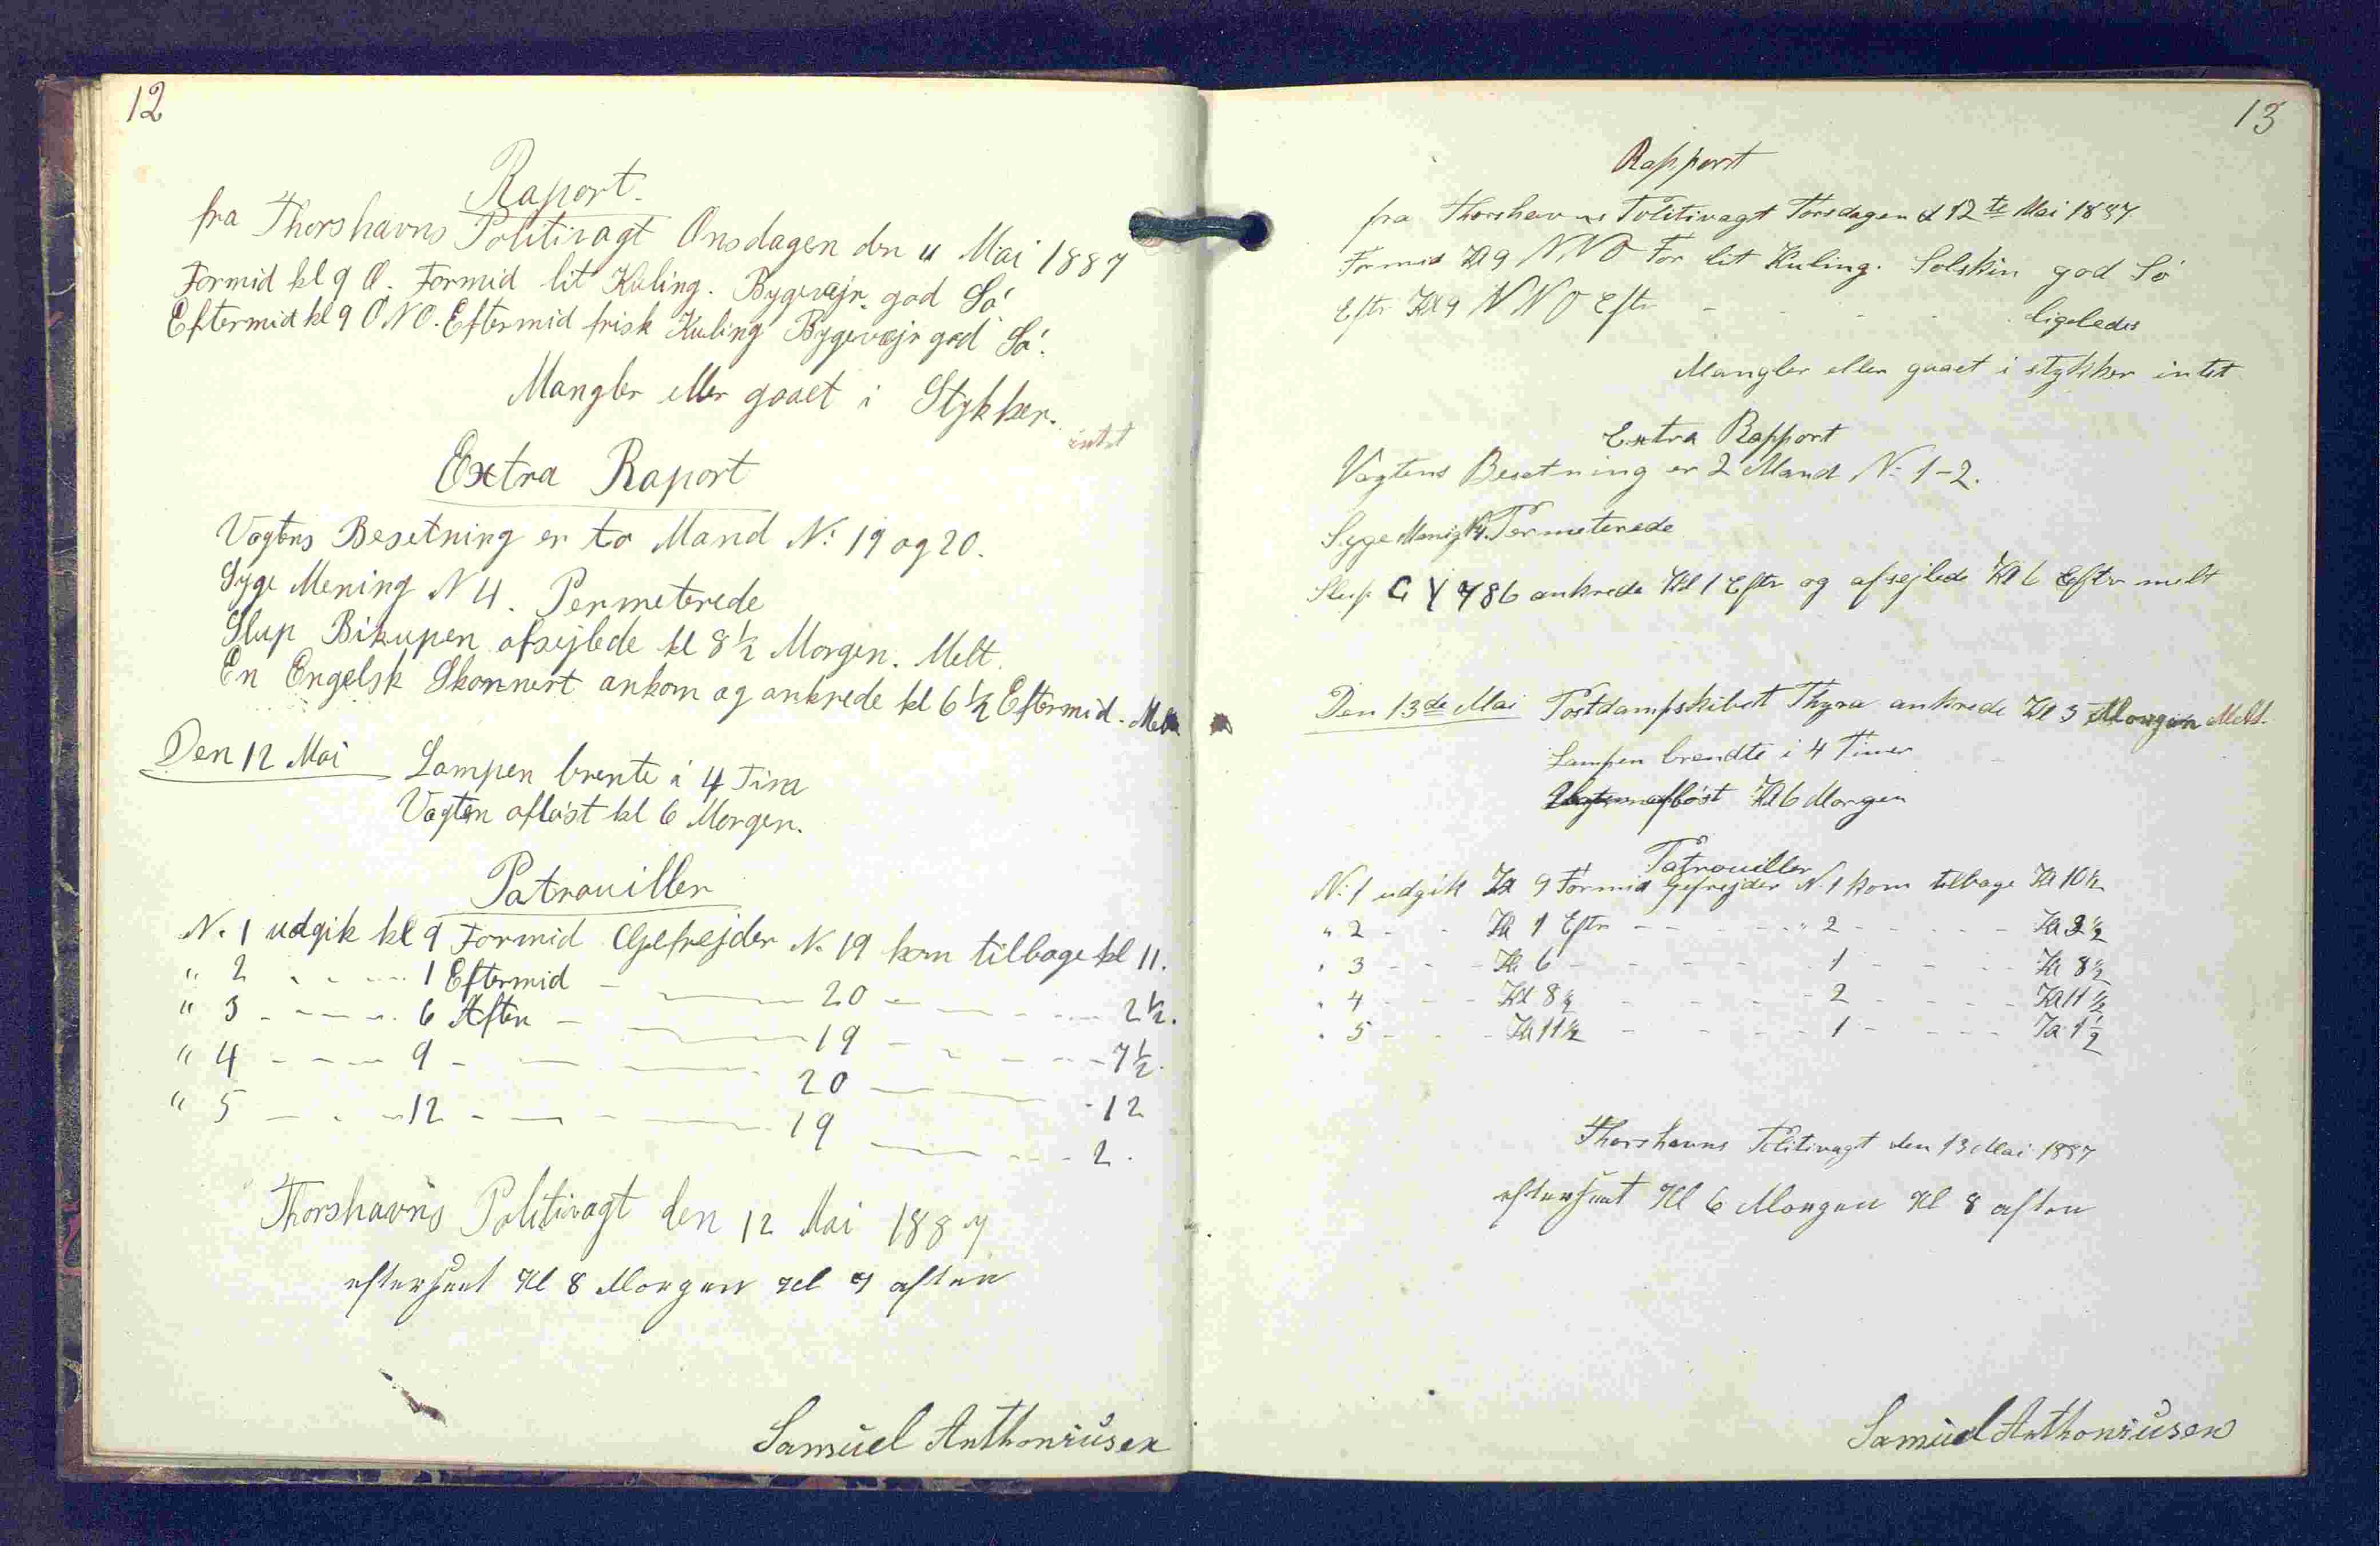 12
Raport.
fra Thorshavns Politivagt Onsdagen den 11 Mai 1887
Formid kl 9 O. Formid lit Kuling. Bygevejr. god Sö.
Eftermid kl 9 ONO. Eftermid frisk Kuling Bygevejr god Sö.
Mangler eller gaaet i Stykker.
intet
Extra Raport
Vagtens Besetning er to Mand N: 19 og 20.
Syge Mening N 4. Permeterede
Slup Bikupen afsejlede kl 8 1/2 Morgen. Melt.
En Engelsk Skonnert ankom og ankrede kl 6 1/2 Eftermid. Melt
Den 12 Mai Lampen brente i 4 Tima
Vagten aflöst kl 6 Morgen.
Patrouiller
N. 1 udgik kl 9 Formid Gefrejder N. 19 kom tilbage kl 11.
" 2 - - - - 1 Eftermid - — 20 - - - - 2 1/2.
" 3 - - - - 6 Aften - — 19 - - - - 7 1/2.
" 4 - - - 9 - — 20 — - 12
" 5 - - - 12 - — 19 — - - - 2.
Thorshavns Politivagt den 12 Mai 1887
efterseet Kl 8 Morgen Kl 7 aften
Samuel Anthoniusen
13
Rapport
fra Thorshavns Politivagt Torsdagen d 12te Mai 1887
Formid Kl 9 NNO For lit Kuling. Solskin god Sö
Eftr Kl 9 NNO Eftr - - - - ligeledes
Mangler eller gaaet i stykker intet
Extra Rapport
Vagtens Besetning er 2 Mand N: 1-2.
Syge Menig N4. Permeterede
Slup GY 786 ankrede Kl 1 Eftr og afsejlede Kl 6 Eftr melt
Den 13de Mai Postdampskibet Thyra ankrede Kl 3 Morgen Melt.
Lampen brendte i 4 Timer
Vagten aflöst Kl 6 Morgen
Patrouiller
N: 1 udgik Kl 9 Formid Gefrejder N 1 kom tilbage Kl 10 1/2
" 2 - - Kl 1 Eftr - - - - " 2 - - - - Kl 2 1/2
" 3 - - - Kl 6 - - - - 1 - - - - Kl 8 1/2
" 4 - - - Kl 8 1/2 - - - - 2 - - - - Kl 11 1/2
" 5 - - - Kl 11 1/2 - - - - 1 - - - - Kl 1 1/2
Thorshavns Politivagt den 13 Mai 1887
efterseet Kl 6 Morgen Kl 8 aften
Samuel Anthoniusen